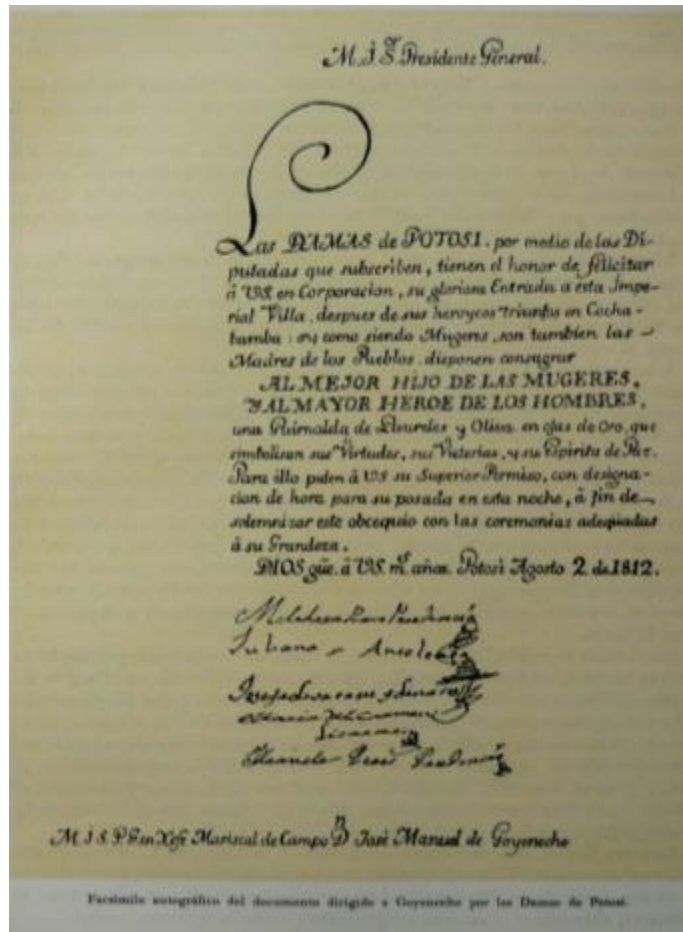 M. I. S.r Presidente General.
Las DAMAS de POTOSI. por medio de las Di-
putadas que subscriben, tienen el honor de felicitar
á VS. en Corporacion, su gloriosa Entrada a esta Impe-
rial Villa. despues de sus heroycos triunfos en Cocha-
bamba: como siendo Mugeres, son tambien las
Madres de los Pueblos. disponen consagrar
AL MEJOR HIJO DE LAS MUGERES,
Y AL MAYOR HEROE DE LOS HOMBRES,
una Guirnalda de Laureles y Oliva en ojas de Oro, que
simbolisan sus Virtudes, sus Victorias, y su Espiritu de Paz.
Para ello piden á VS su Superior Permiso, con designa-
cion de hora para su posada en esta noche, á fin de
solemnizar este obcequio con las ceremonias adequadas
á su Grandeza.
DIOS güe. á VS. m.s años. Potosi Agosto 2 de 1812.
Juliana
M. I. S. P. G. en Xefe Mariscal de Campo Dn José Manuel de Goyeneche
Facsímile autográfico del documento dirigido a Goyeneche por las Damas de Potosí.